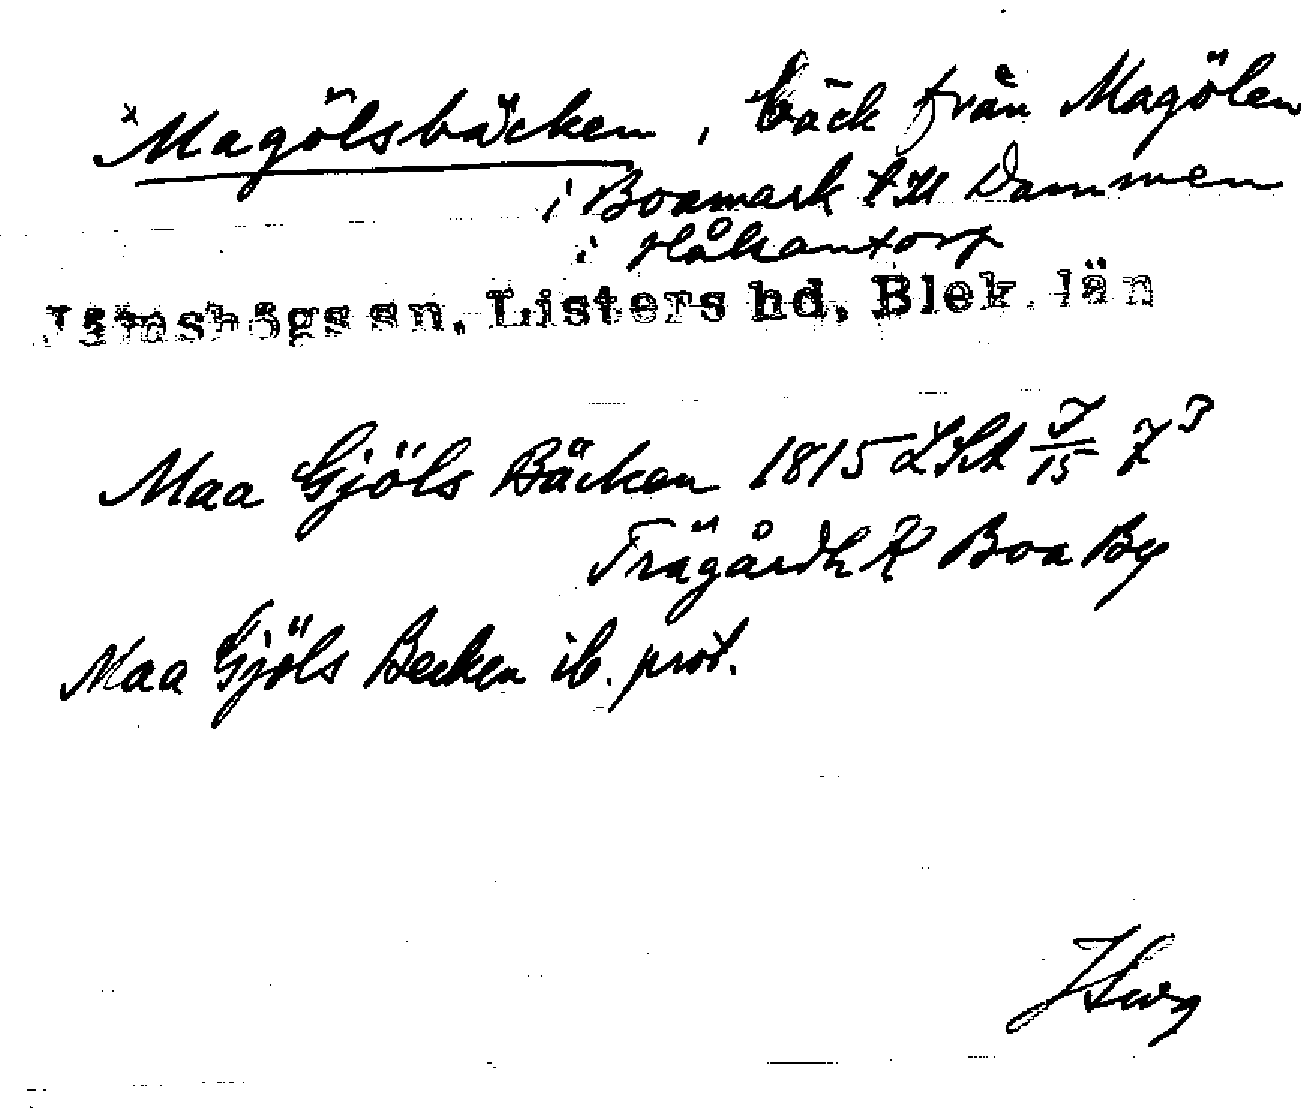 x Magölsbäcken, bäck från Magölen
i Boamark till Dammen
i Håkantorp
Jämshögs sn, Listers hd, Blek. län
Maa Gjöls Bäcken 1815 LSA J/15 7³
Trägårdh K Boa By
Maa Gjöls Becken ib. prot.